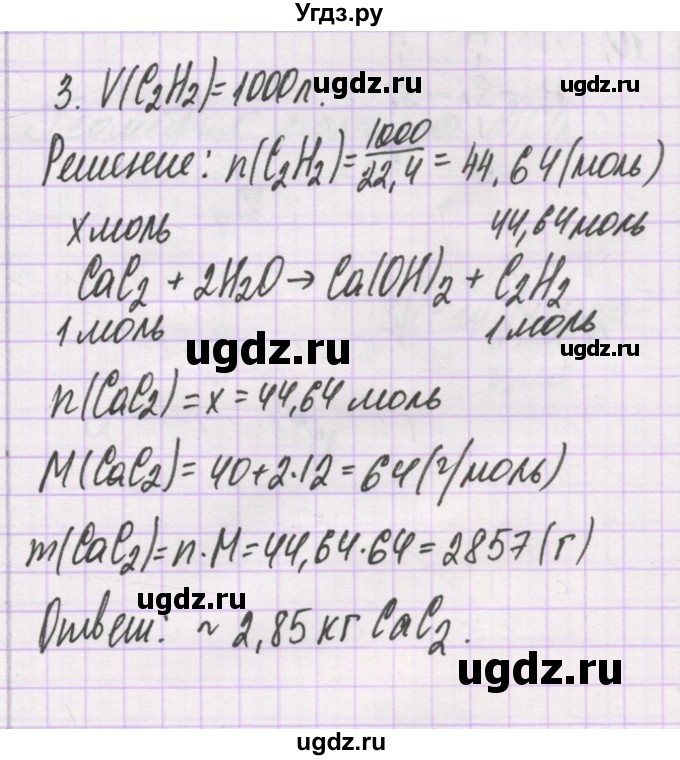 Угдз.ру
3. V(C₂H₂)=1000л.
ugdz.ru
Решение: n(C₂H₂)=1000/22,4=44,64(моль)
x моль 44,64 моль
CaC₂ + 2H₂O → Ca(OH)₂ + C₂H₂
1 моль 1 моль
ugdz.ru ugdz.ru
n(CaC₂)=x=44,64 моль
M(CaC₂)=40+2·12=64(г/моль)
m(CaC₂)=n·M=44,64·64=2857(г)
ugdz.ru
Ответ: ~ 2,85 кг CaC₂.
ugdz.ru
ugdz.ru